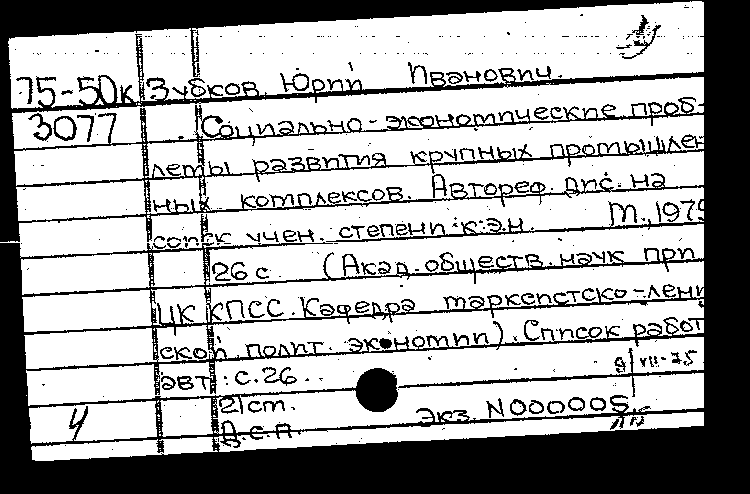 75-50к Зубков Юрий Иванович.
3077 Социально-экономические проб-
лемы развития крупных промышлен
ных комплексов. Автореф. дис. на
соиск учен. степени к.э.н. М., 1975
26 с. (Акад. обществ. наук при
ЦК КПСС. Кафедра марксистско-лени
ской полит. экономии). Список работ
авт.: с. 26.
9/VII-75
21 cm.
Экз. N 000005
4